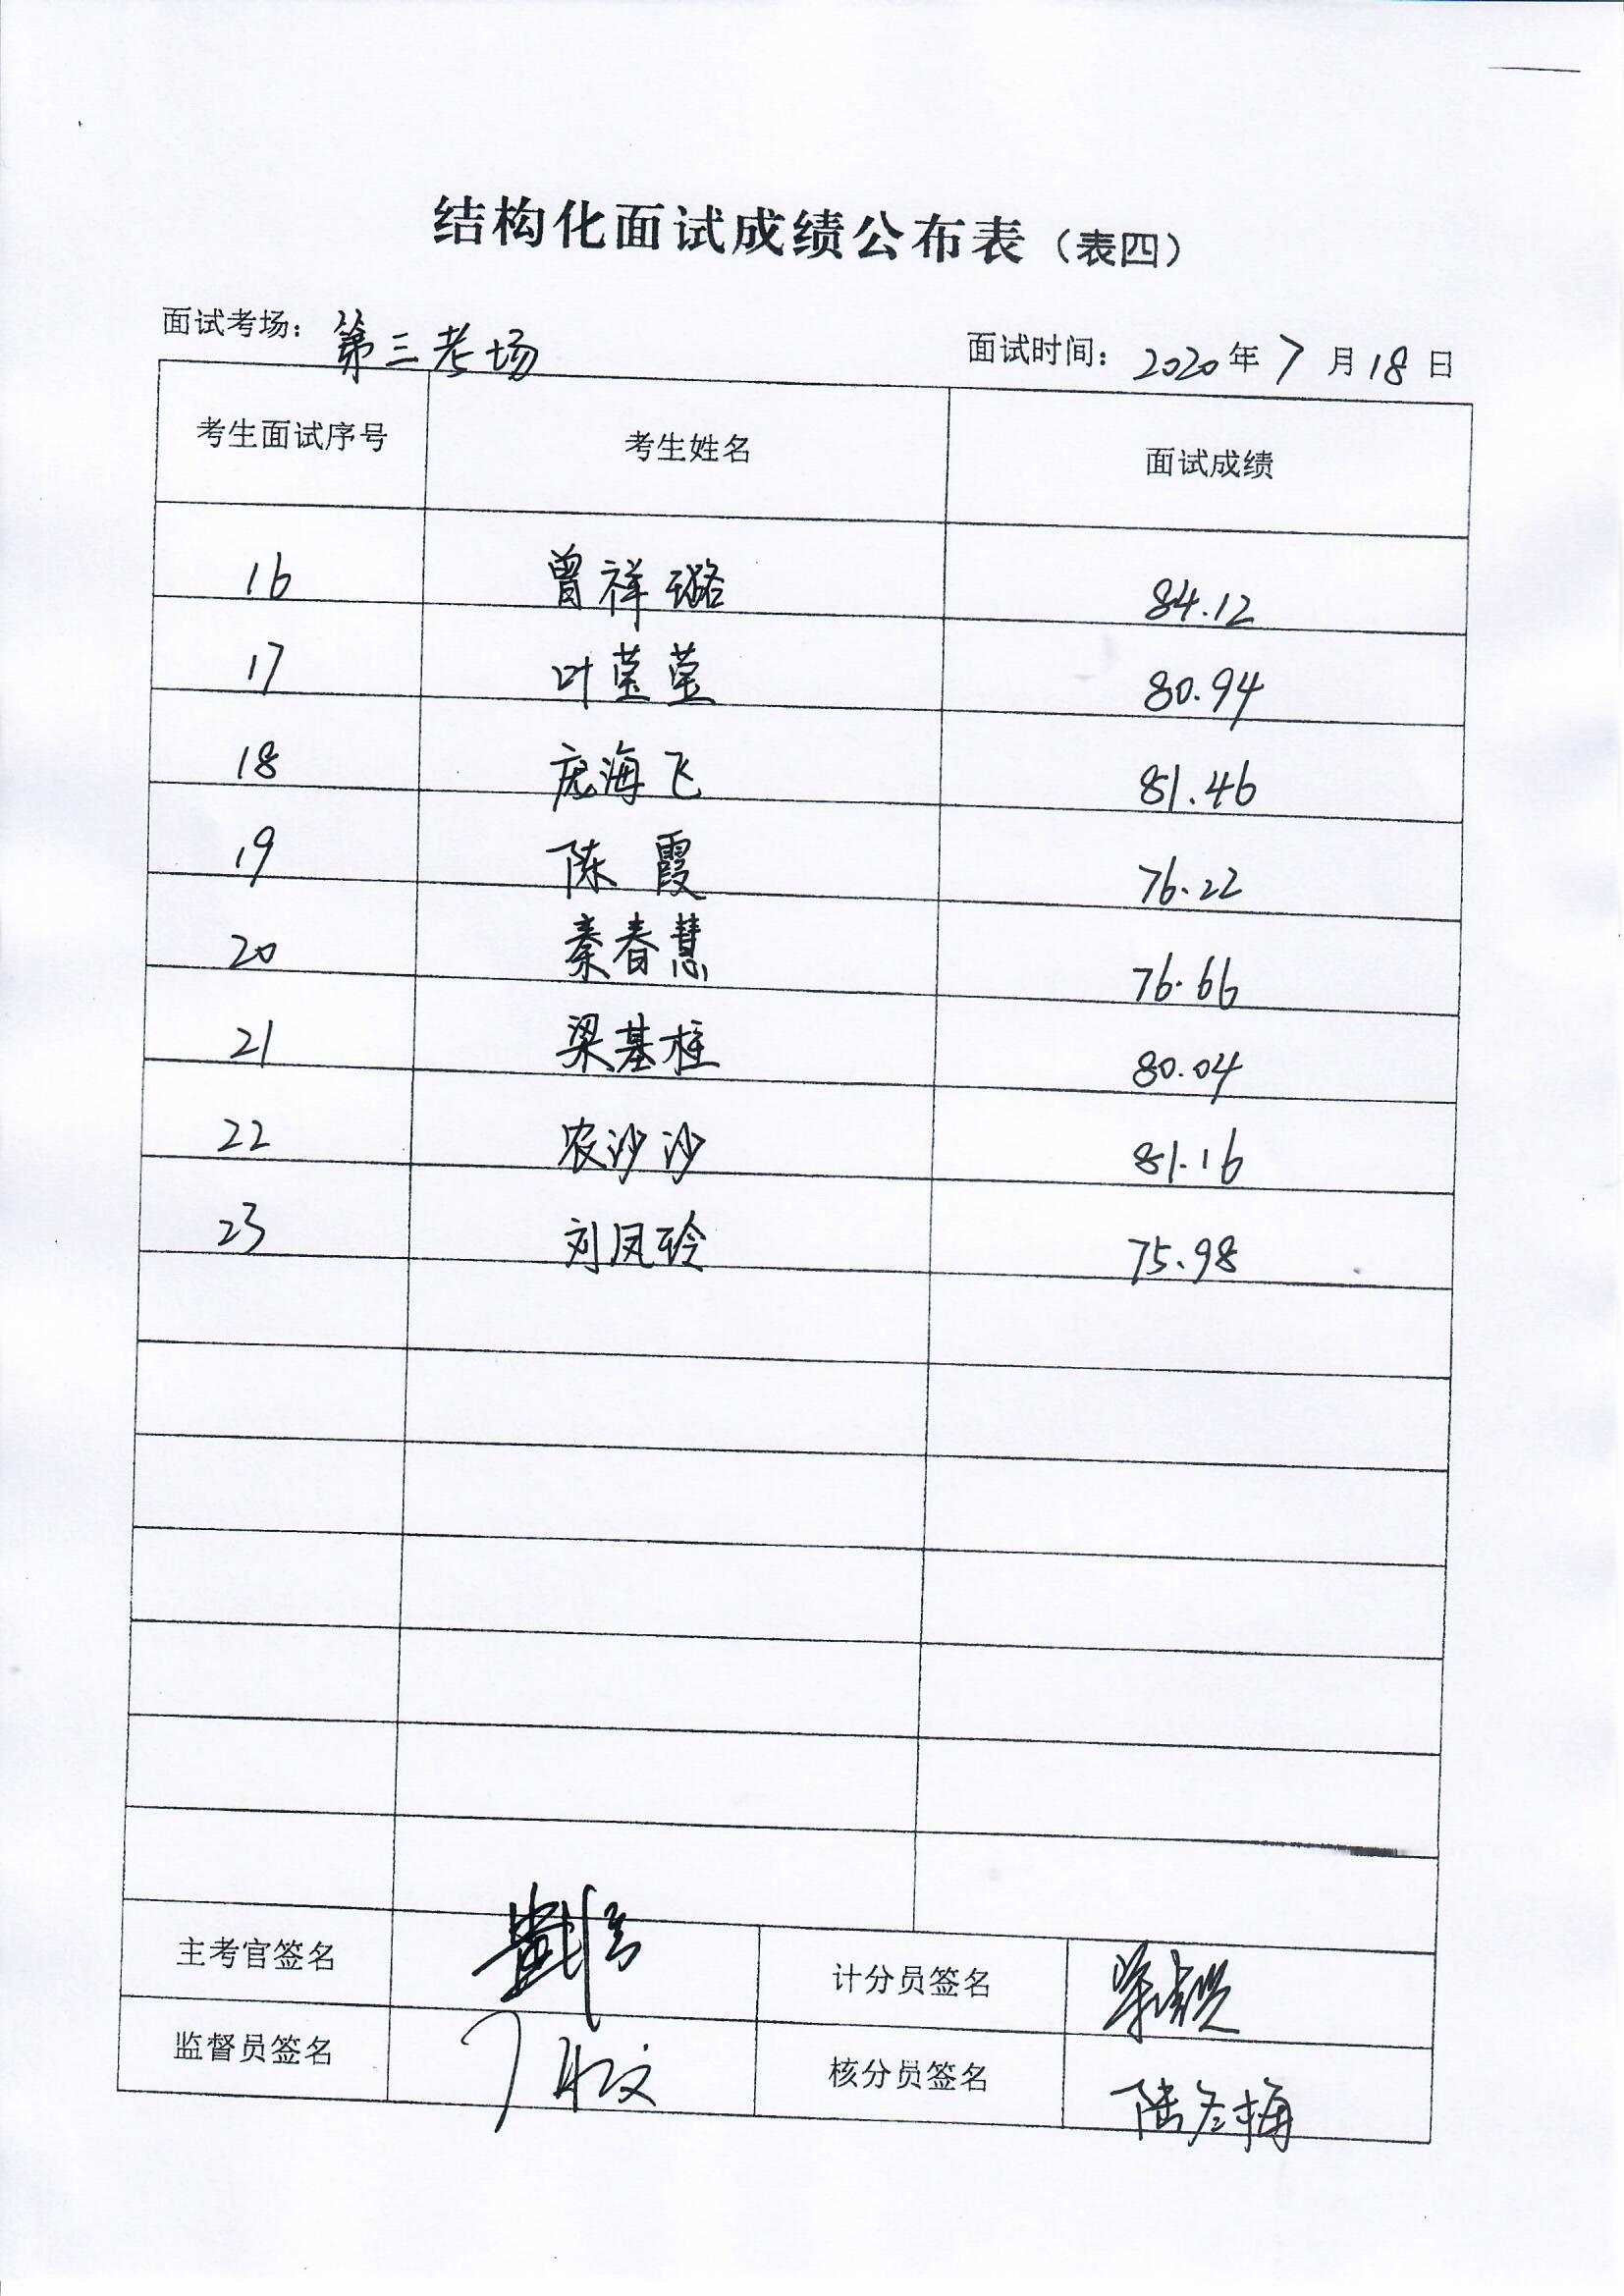 结构化面试成绩公布表（表四）
面试考场： 第三考场 面试时间： 2020年7月18日
考生面试序号 考生姓名 面试成绩
16 曾祥璐 84.12
17 叶莹莹 80.94
18 庞海飞 81.46
19 陈霞 76.22
20 秦春慧 76.66
21 梁基桂 80.04
22 农沙沙 81.16
23 刘凤玲 75.98
主考官签名 计分员签名
监督员签名 核分员签名